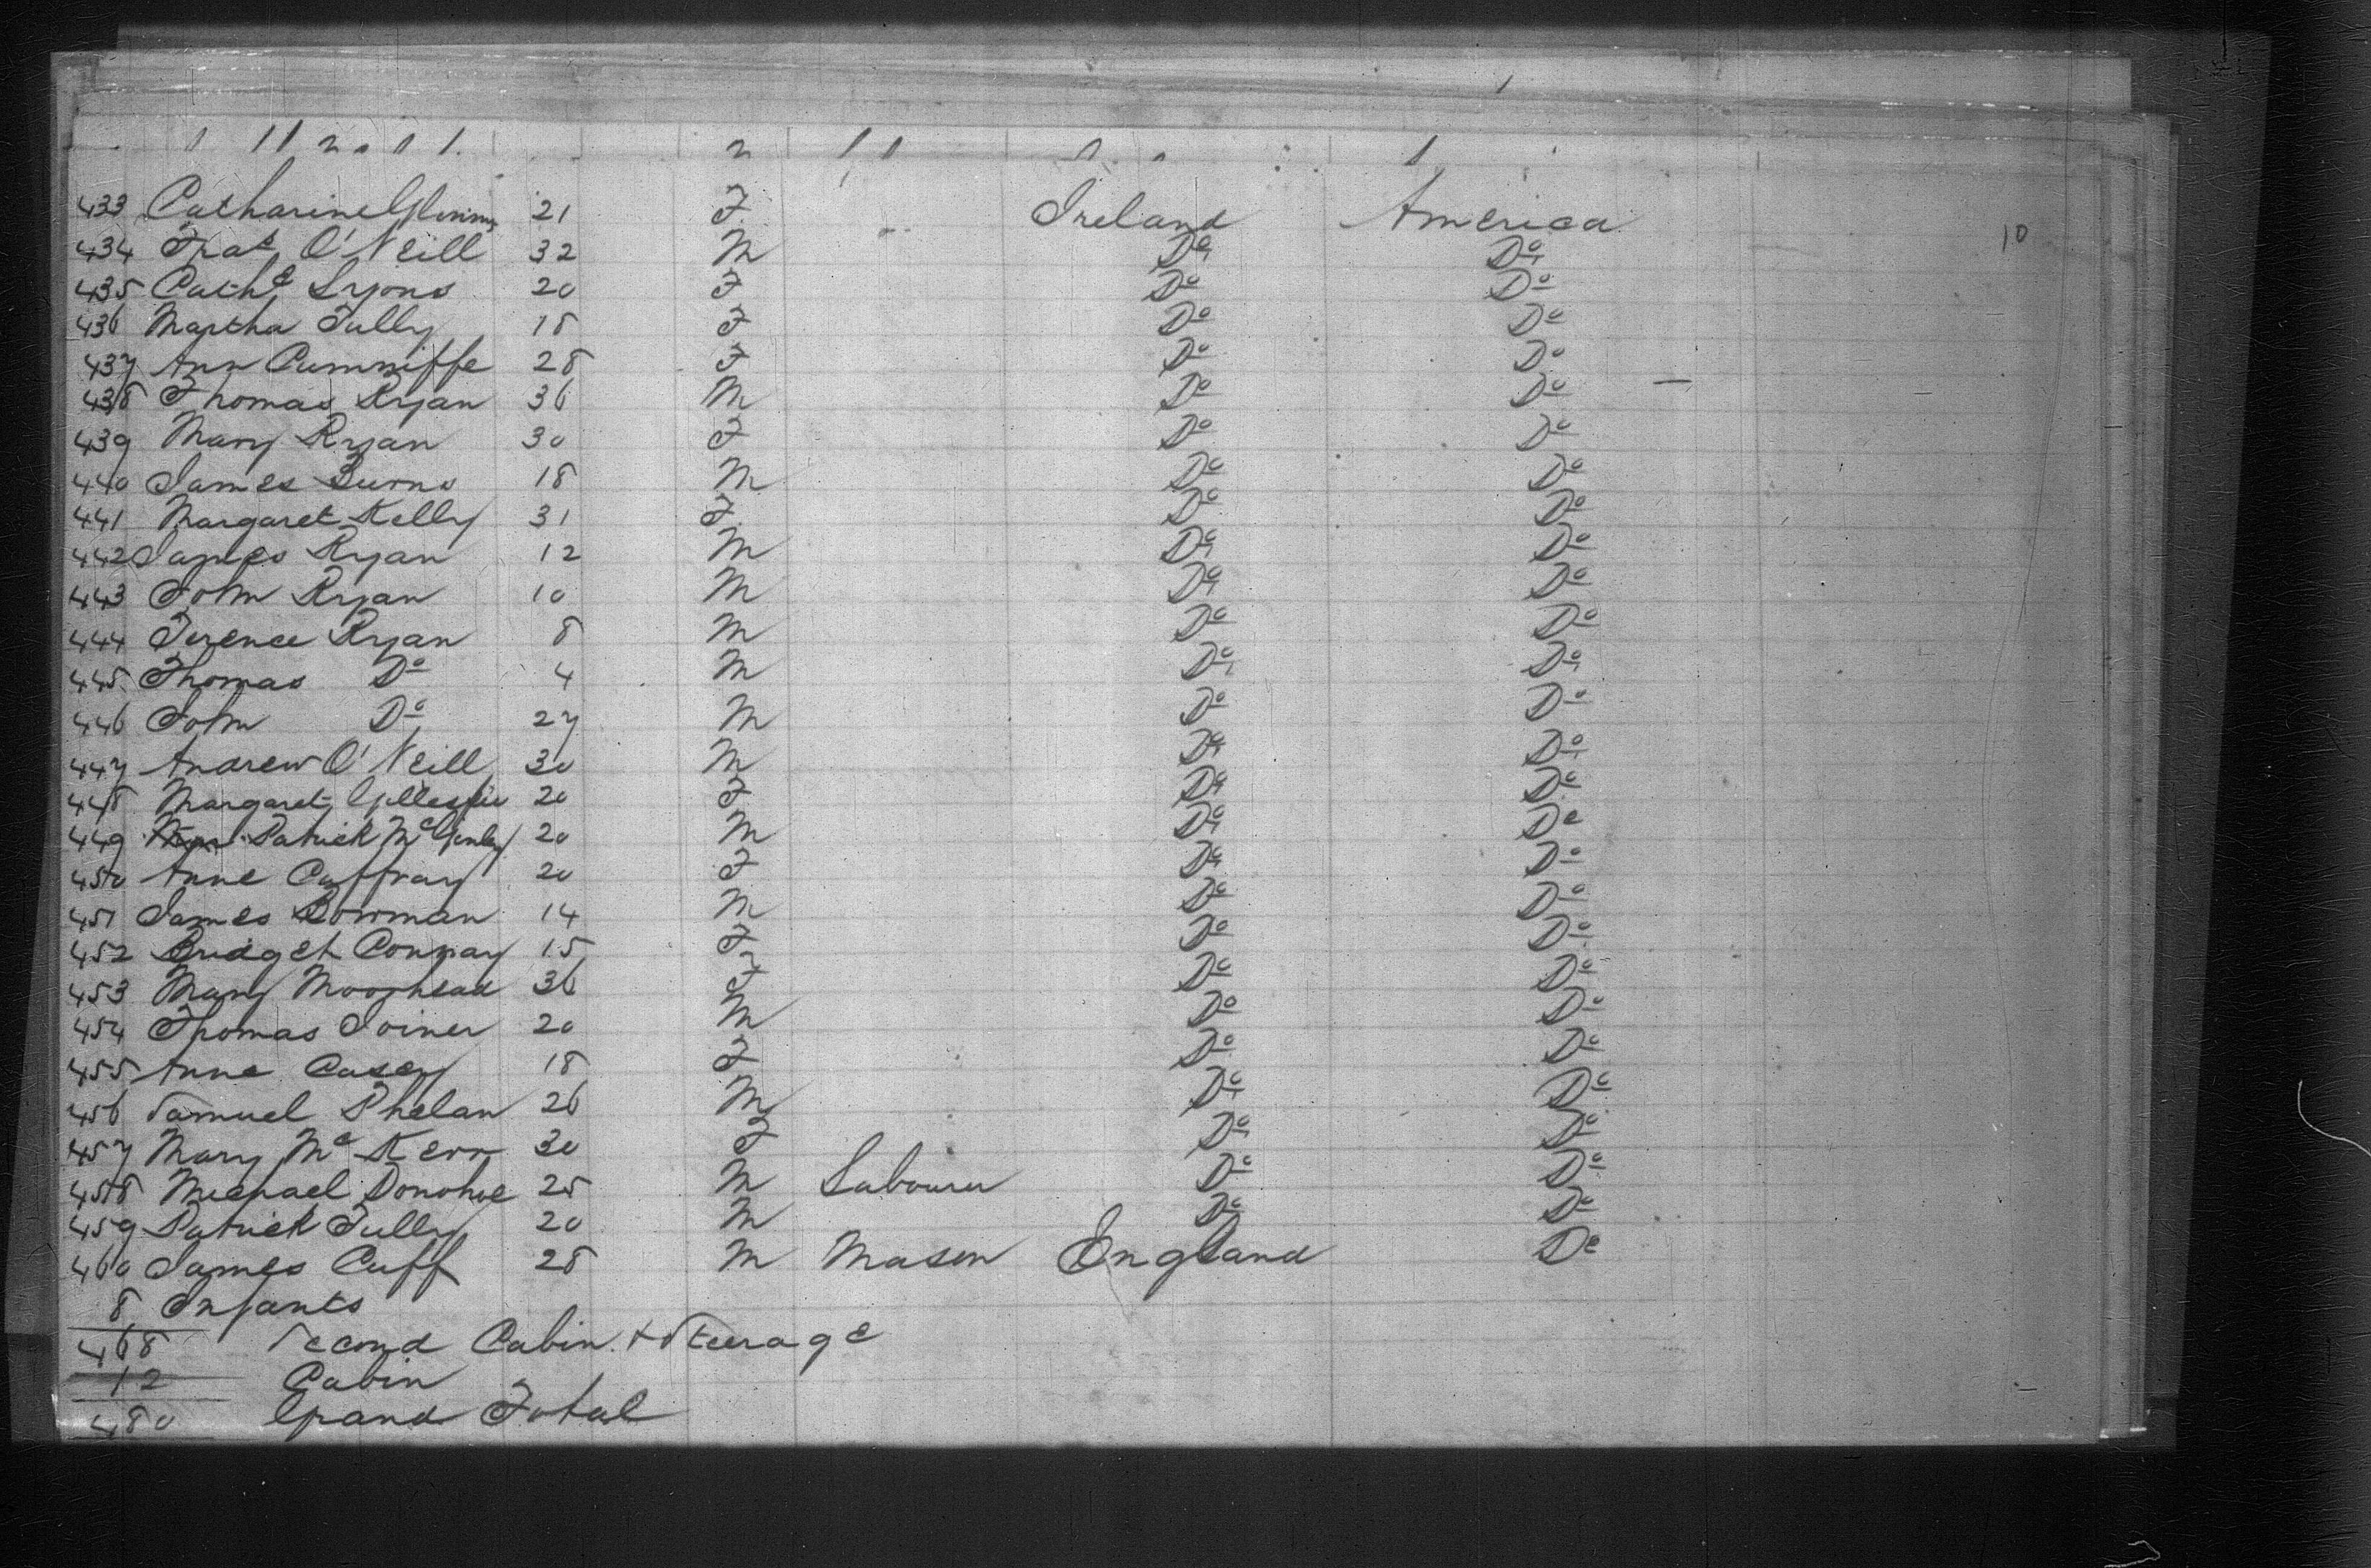 433 Catharine 21 F Ireland America
10
434 O'Neill 32 M Do Do
435 Cathe Lyons 20 F Do Do
436 Martha Tully 18 F Do Do
437 Ann Cunniffe 28 F Do Do
438 Thomas Ryan 36 M Do Do —
439 Mary Ryan 30 F Do Do
440 James Burns 18 M Do Do
441 Margaret Kelly 31 F Do Do
442 James Ryan 12 M Do Do
443 John Ryan 10 M Do Do
444 Terence Ryan 8 M Do Do
445 Thomas Do 4 M Do Do
446 John Do 27 M Do Do
447 Andrew O'Neill 30 M Do Do
448 Margaret Gillespie 20 F Do Do
449 Patrick McGinley 20 M Do Do
450 Anne Caffray 20 F Do Do
451 James Bowman 14 M Do Do
452 Bridget Conway 15 F Do Do
453 Mary Moorhead 36 F Do Do
454 Thomas Joiner 20 M Do Do
455 Anne Casey 18 F Do Do
456 Samuel Phelan 26 M Do Do
457 Mary McKerr 30 F Do Do
458 Michael Donohoe 25 M Labourer Do Do
459 Patrick Tully 20 M Do Do
460 James Cuff 28 M Mason England Do
8 Infants
468 Second Cabin + Steerage
12 Cabin
480 Grand Total